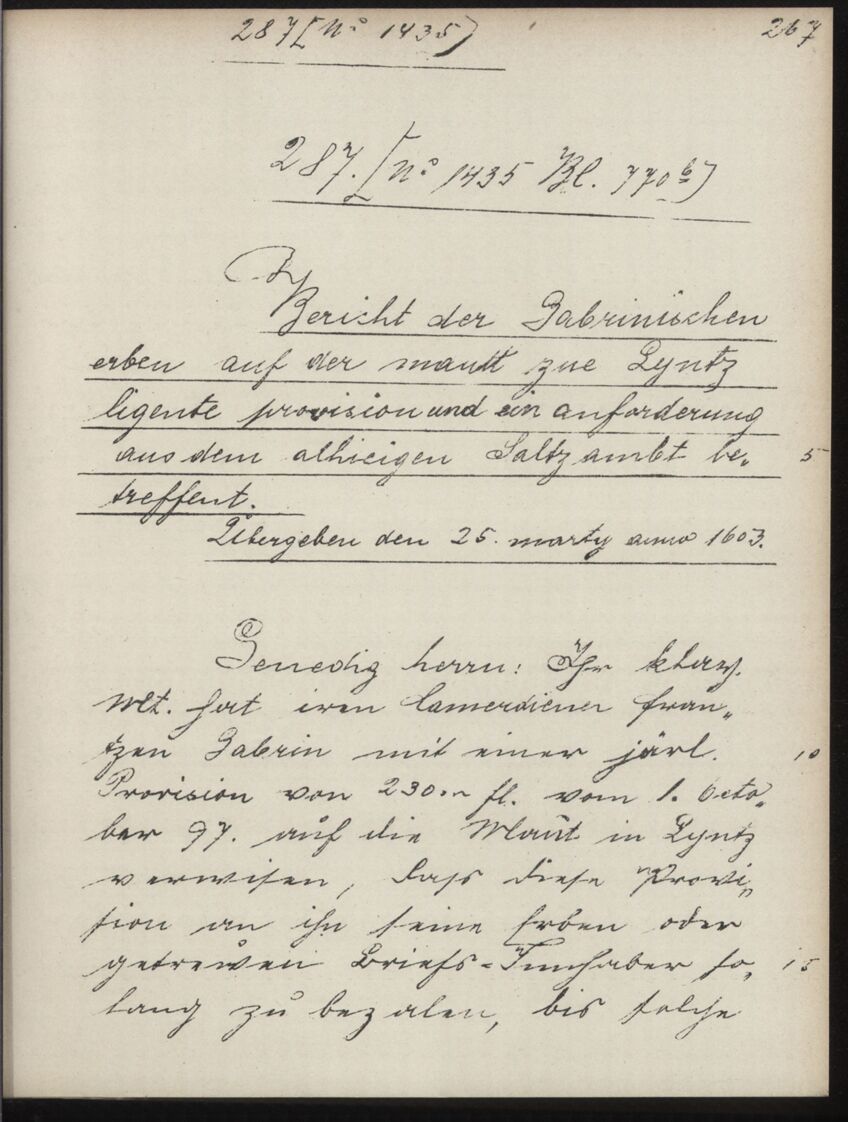 287[No 1435]
267
287. [No 1435 Bl. 770b]
Bericht der Gabrinischen
erben auf der mautt zue Lyntz
ligente provision und ein anforderung
aus dem alhieigen Saltzambt be-
5
treffent.
Übergeben den 25. marty anno 1603.
Genedig herrn: Ihr khay.
Mt. hat iren Camerdiener Fran-
tzen Gabrin mit einer järl.
10
Provision von 230 fl. vom 1. Octo-
ber 97. auf die Maut in Lyntz
verwisen, dass diese Provi-
sion an ihn seine Erben oder
getrewen Briefs-Innhaber so-
15
lang zu bezalen, bis solche